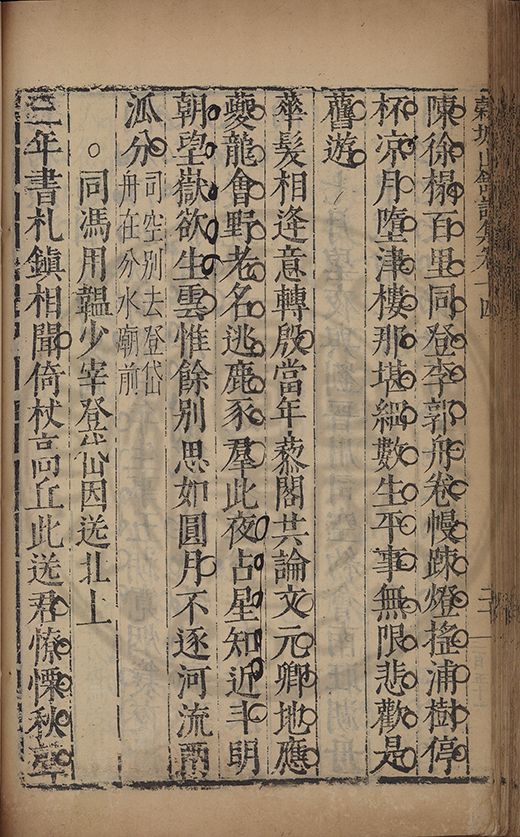 穀城山館詩集卷十四
陳徐榻百里同登李郭舟卷幔踈燈搖浦樹停
杯凉月墮津樓那堪細數生平事無限悲歡是
舊遊
華髮相逢意轉殷當年藜閣共論文元卿地應
夔龍會野老名逃鹿豕羣此夜占星知近斗明
朝望嶽欲生雲惟餘別思如圓月不逐河流兩
泒分司空別去登岱
舟在分水廟前
○同馮用韞少宰登岱因送北上
三年書札鎮相聞倚杖高丘此送君憭慄秋草